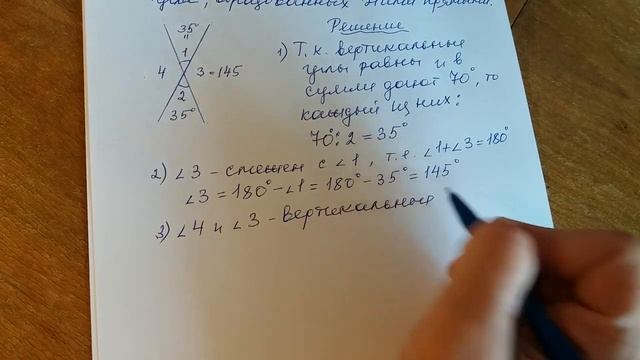 этими прямыми.
Решение
35°
"
1
4
3 = 145
2
35°
1) Т. к. вертикальные
углы равны и в
сумме дают 70°, то
каждый из них:
70° : 2 = 35°
2) ∠3 - смежен с ∠1, т.е. ∠1+∠3=180°
∠3 = 180° - ∠1 = 180° - 35° = 145°
3) ∠4 и ∠3 - вертикальные